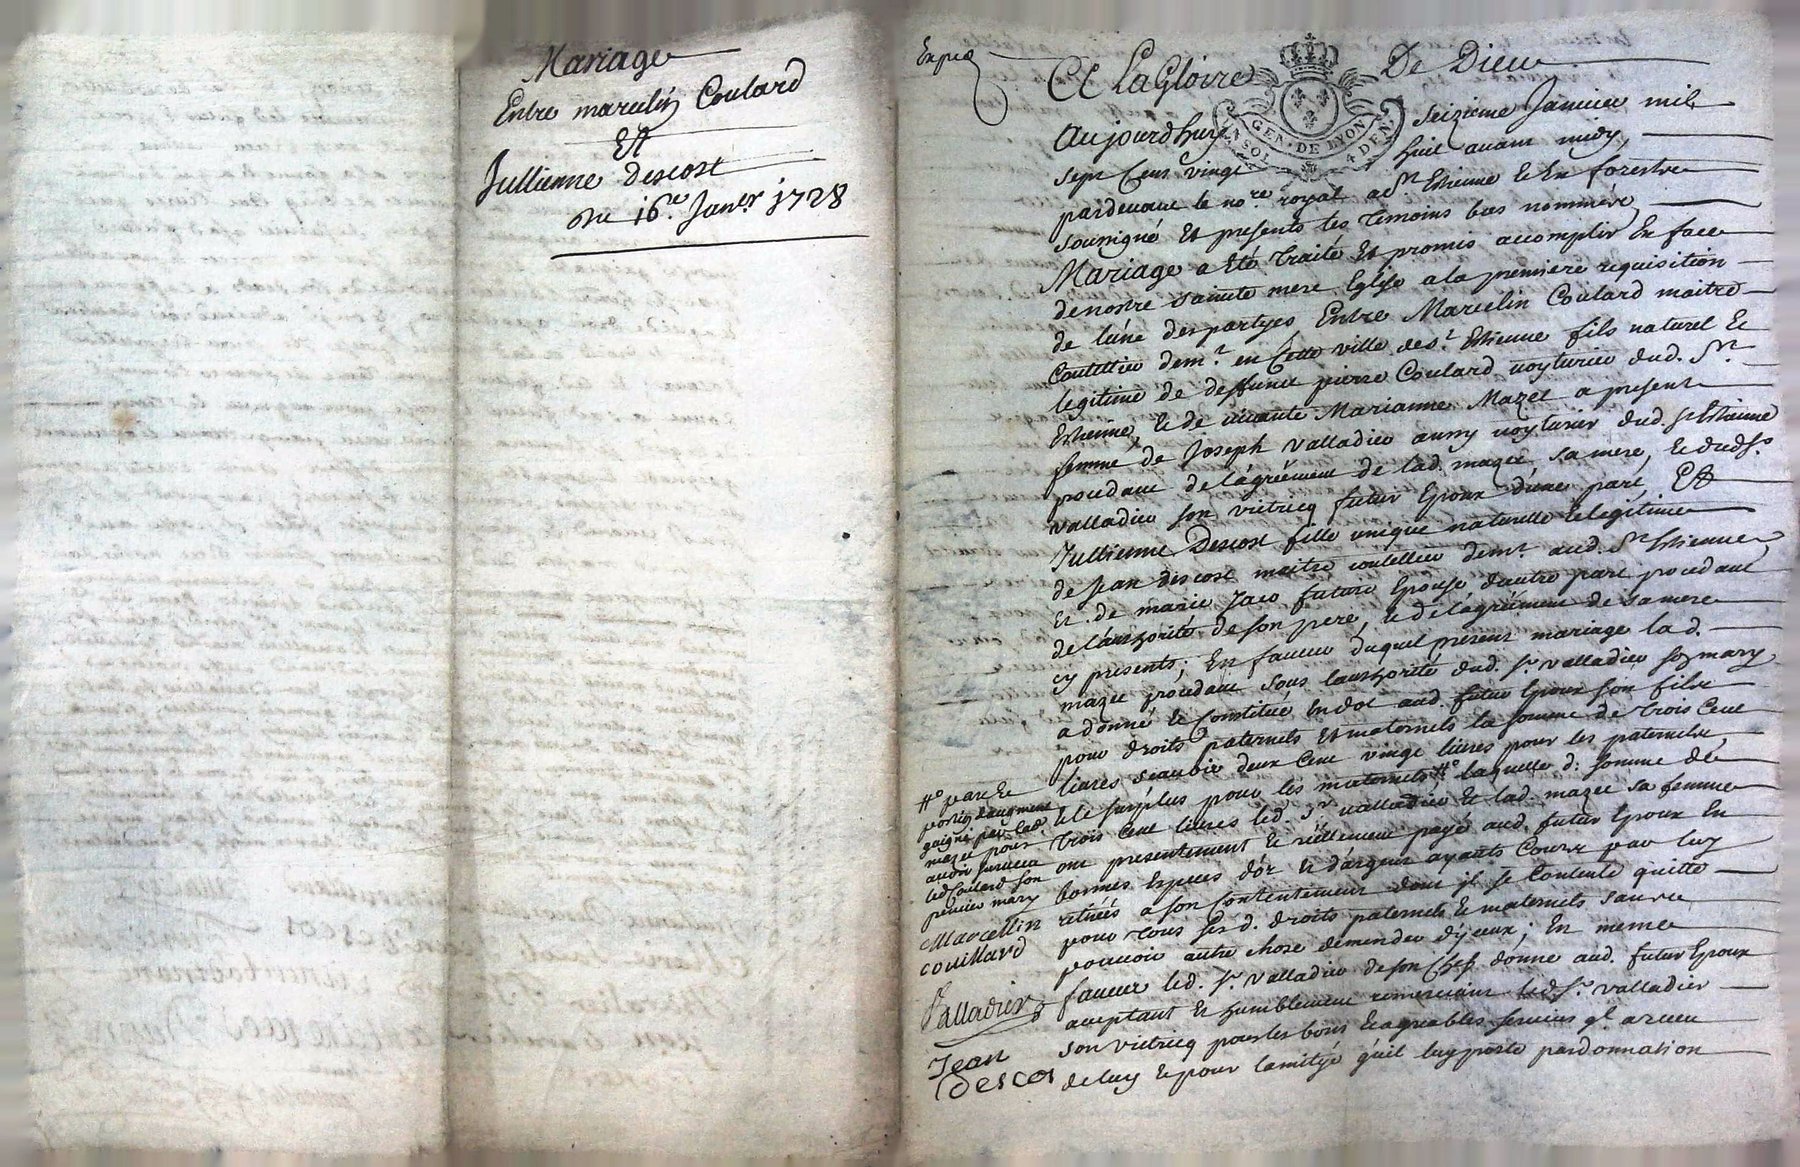 Mariage
Entre marcelin Coulard
Et
Jullienne descost
du 16.e Janer 1728
Expié
A La Gloire De Dieu
GEN. DE LYON
UN SOL 4 DEN.
Aujourdhuy seizieme Janvier mil
sept Cens vingt huit avant midy,
pardevant le nore royal a St Estienne de En forest
soussigné Et presents les temoins bas nommés,
Mariage a Eté traité Et promis accomplir En face
de nostre sainte mere Eglise a la premiere requisition
de l'une des partyes, Entre Marcelin Coulard maitre
Coutellier demt en Cette ville de St Estienne fils naturel Et
legitime de deffunct pierre Coulard voyturier dud. St
Estienne, Et de vivante Marianne Mazet a present
femme de Joseph Valladier aussy voyturier dud. St Estienne
procedant de l'agrément de lad. mazet, sa mere, Et dud. Sr
Valladier son vitricq futur Epoux d'une part, Et
Jullienne Descost fille unique naturelle Et legitime
de Jean descost maitre coutellier demt aud. St Estienne,
Et de marie Jaco future Epouse d'autre part procedant
de l'authorité de son pere, Et de l'agrément de sa mere
cy presents; En faveur duquel present mariage lad.
mazet procedant sous l'authorité dud. Sr Valladier son mary
a donné Et Constitué En dot aud. futur Epoux son fils
pour droits paternels Et maternels la somme de trois Cent
livres scauoir deux Cent vingt livres pour les paternels,
Et le surplus pour les maternels # laquelle d. somme de
trois Cent livres led. Sr valladier Et lad. mazet sa femme
ont presentement Et réellement payé aud. futur Epoux En
bonnes Especes d'or Et d'argent ayants Cours par luy
retirées a son Contentement dont il se Contente quitte
pour tous sesd. droits paternels Et maternels sans
pouvoir autre chose demander d'yceux; En meme
faveur led. Sr Valladier de son Chef donne aud. futur Epoux
acceptant Et humblement remerciant led. Sr. Valladier
son vitricq pour les bons Et agreables services ql a receu
de luy Et pour l'amityé qu'il luy porte par donnation
# par Et
portion d'augment
gaigné par lad.
mazet pour
avoir survecu
led. Coulard son
premier mary
Marcellin
couillard
Valladier
Jean
Descos